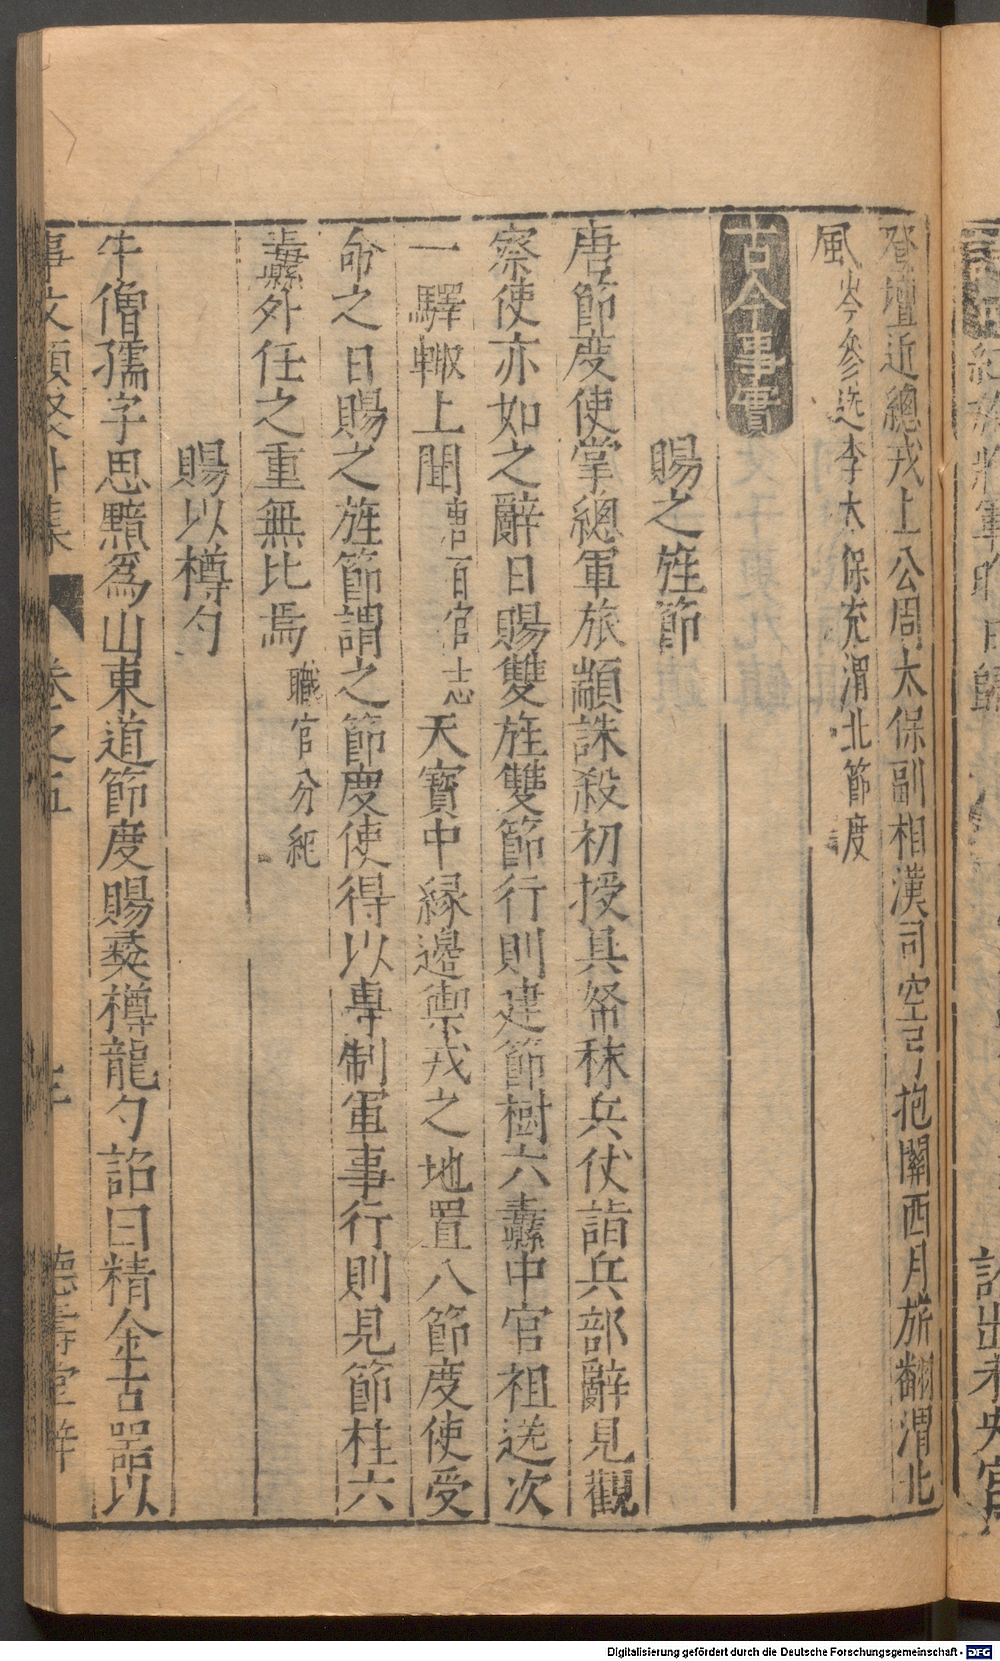 登壇近總戎上公周太保副相漢司空弓抱關西月旂翻渭北
風岑參送李太保充渭北節度
古今事實
賜之旌節
唐節度使掌總軍旅顓誅殺初授具帑秣兵仗詣兵部辭見觀
察使亦如之辭日賜雙旌雙節行則建節樹六纛中官祖送次
一驛輙上聞唐百官志天寶中縁邊禦戎之地置八節度使受
命之日賜之旌節謂之節度使得以專制軍事行則見節柱六
纛外任之重無比焉職官分紀
賜以樽勺
牛僧孺字思黯爲山東道節度賜彛樽龍勺詔曰精金古器以
卷之五
德壽堂梓
Digitalisierung gefördert durch die Deutsche Forschungsgemeinschaft - DFG